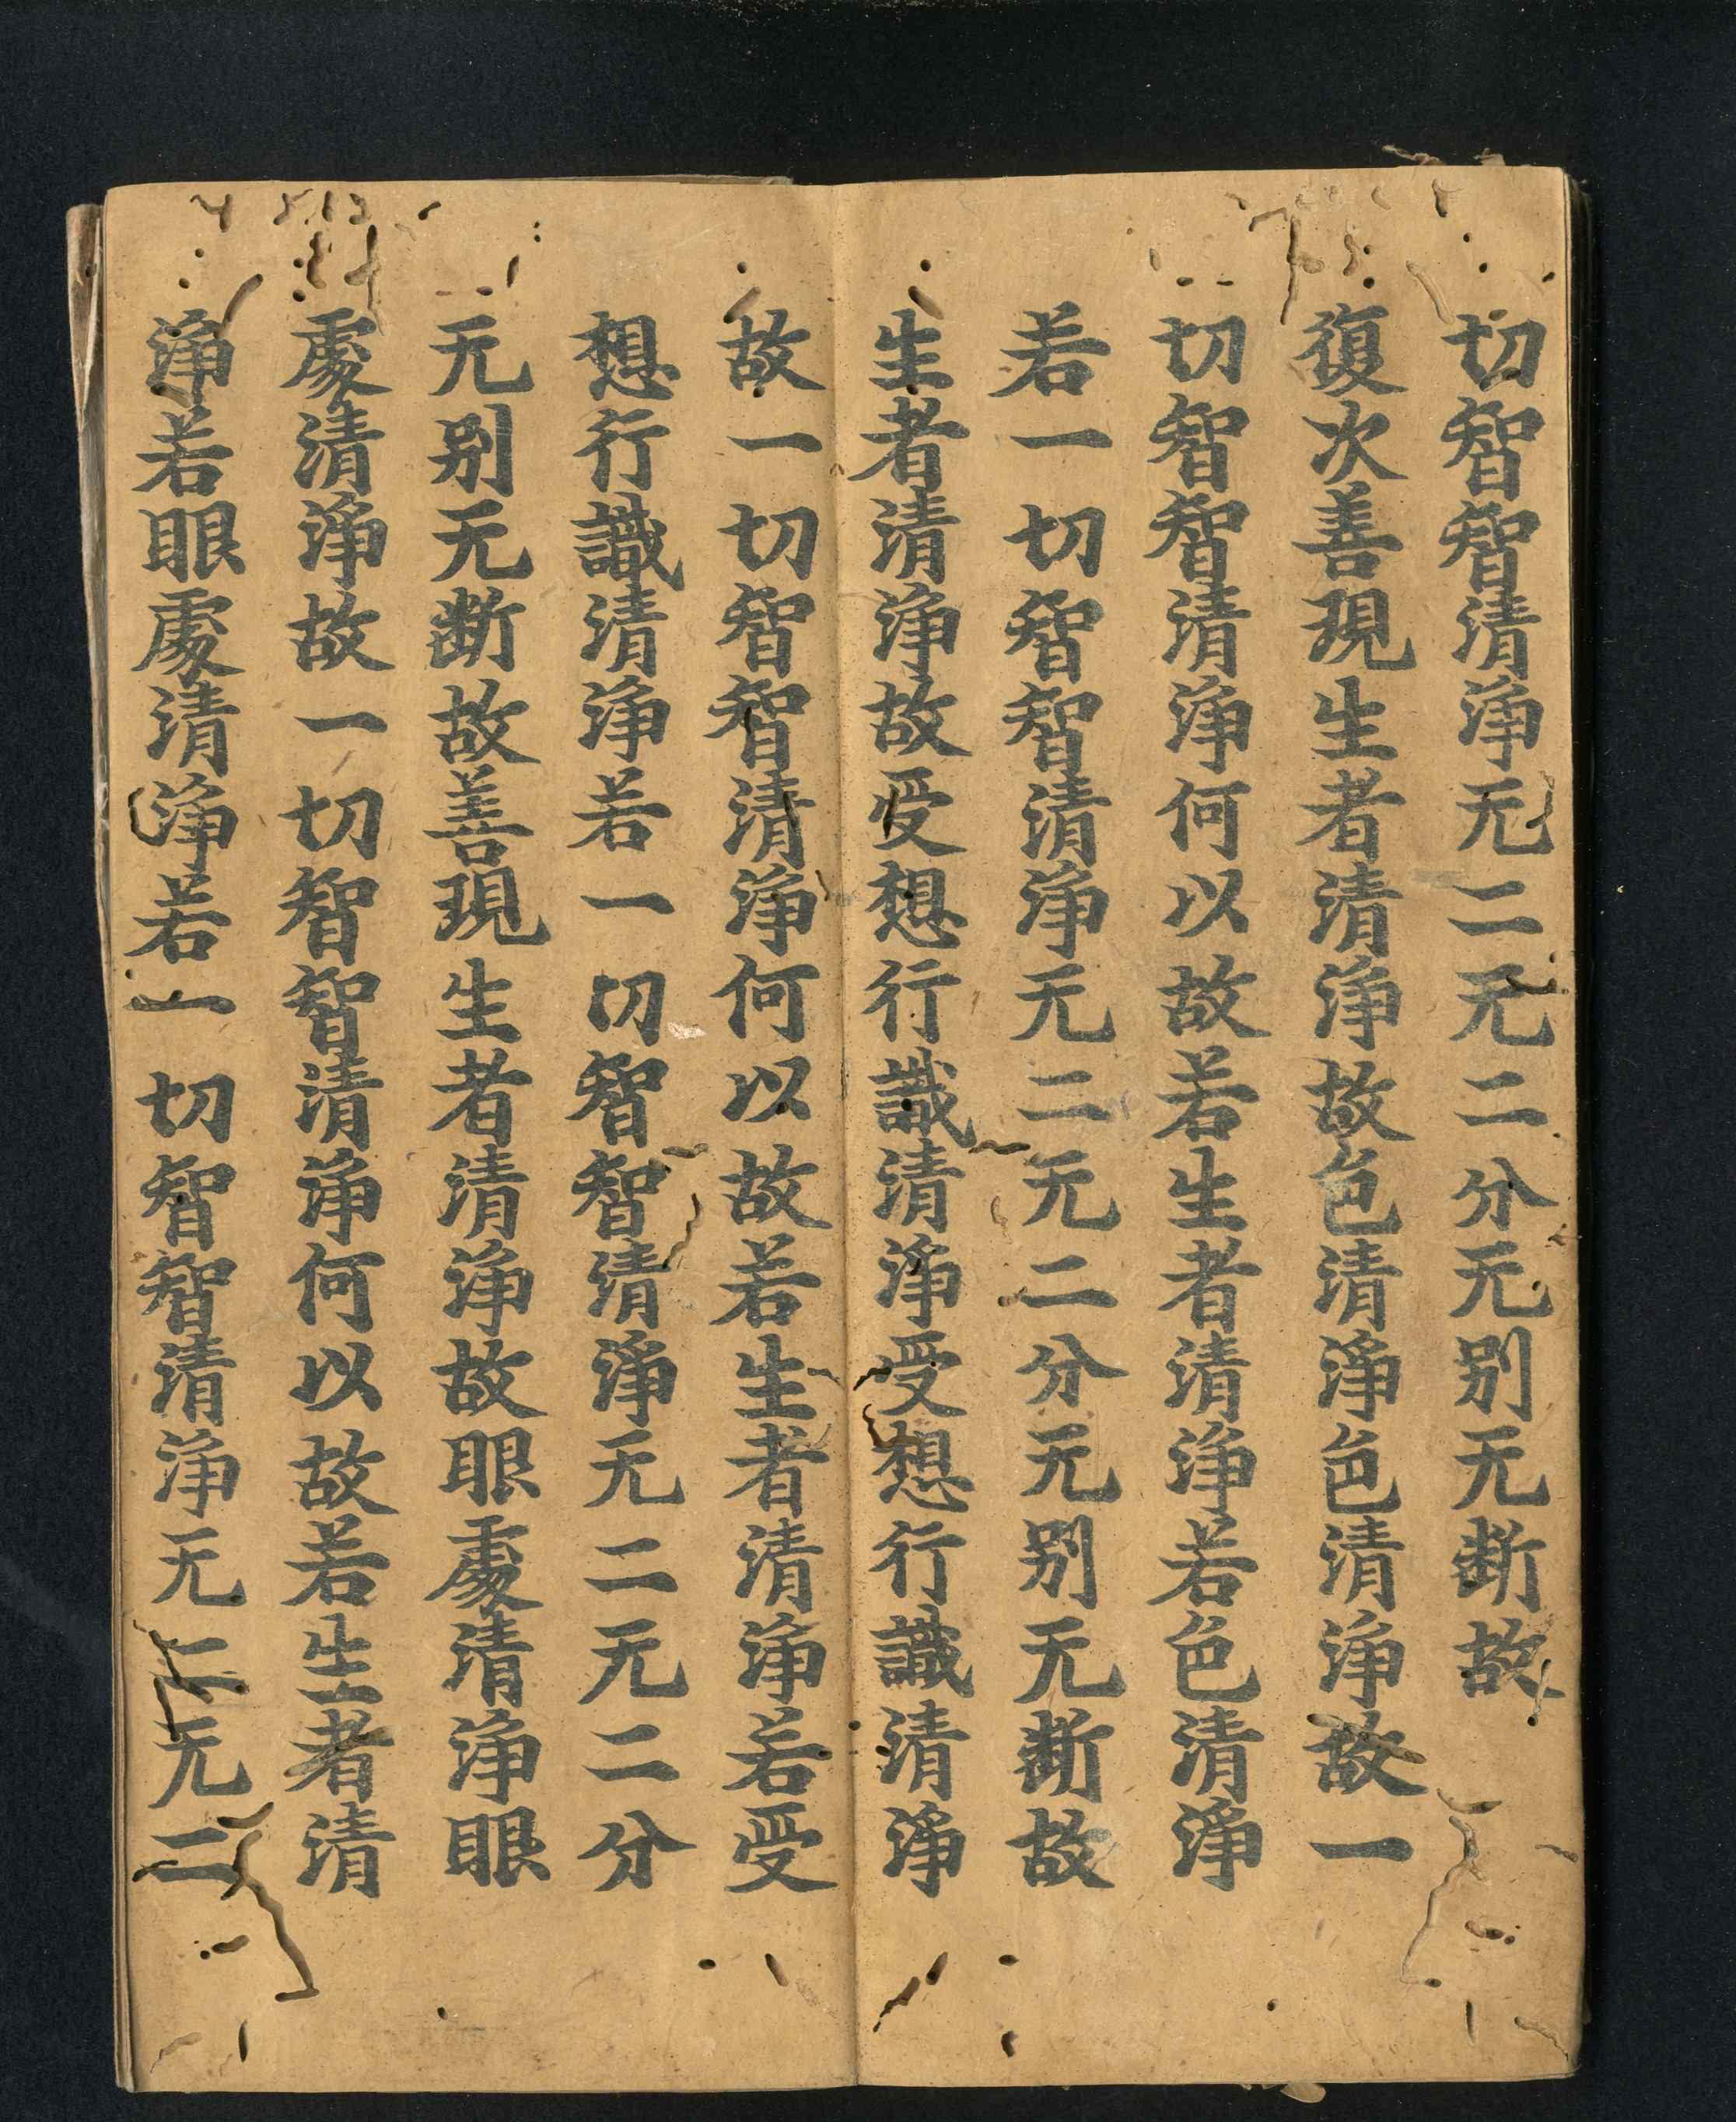 切智智清淨无二无二分无别无断故
復次善現生者清淨故色清淨色清淨故一
切智智清淨何以故若生者清淨若色清淨
若一切智智清淨无二无二分无别无断故
生者清淨故受想行識清淨受想行識清淨
故一切智智清淨何以故若生者清淨若受
想行識清淨若一切智智清淨无二无二分
无别无断故善現生者清淨故眼處清淨眼
處清淨故一切智智清淨何以故若生者清
淨若眼處清淨若一切智智清淨无二无二